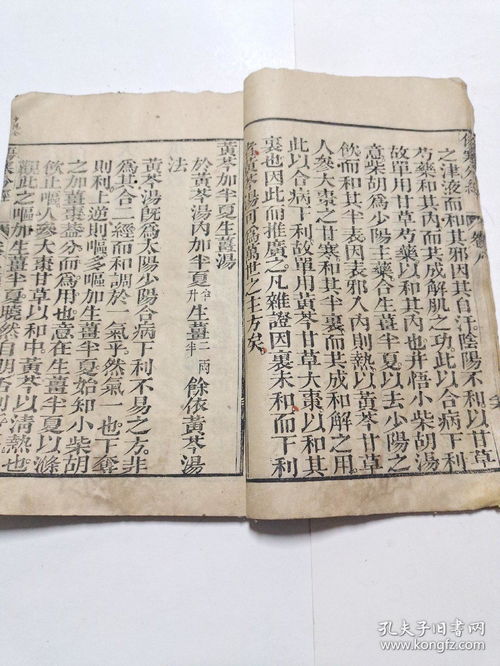 之津液而和其邪因其自汗陰陽不和以甘草
芍藥和其內而其成解肌之功此以合病下利
故單用甘草芍藥以和其內也并悟小柴胡湯
意柴胡爲少陽主藥合生薑半夏以去少陽之
飲而和其半表因表邪入內則熱以黃芩甘草
人參大棗甘寒和其半裏而其成和解之用
此以合病下利故單用黃芩甘草大棗以和其
裏也因此而推廣之凡雜證因裏未和而下利
黃芩湯可爲萬世之主方矣
黃芩加半夏生薑湯
於黃芩湯內加半夏 生薑 餘依黃芩湯
法
黃芩湯既爲太陽少陽合病下利不易之方非
爲其合二經而和調於一氣乎然氣一也下奪
則利上逆則嘔多嘔加生薑半夏始知小柴胡
之加薑棗蓋分而爲用也意在生薑半夏以滌
飲止嘔人參大棗甘草以和中黃芩以清熱也
觀此之嘔加生薑半夏曉然自明否則
孔夫子旧书网